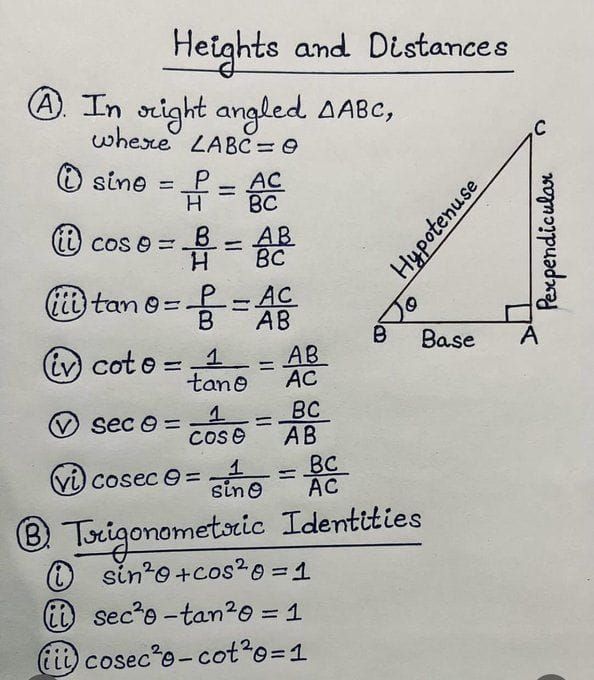 Heights and Distances
(A). In right angled ΔABC,
where ∠ABC = θ
(i) sinθ = P/H = AC/BC
(ii) cos θ = B/H = AB/BC
(iii) tan θ = P/B = AC/AB
(iv) cot θ = 1/tanθ = AB/AC
(v) sec θ = 1/cos θ = BC/AB
(vi) cosec θ = 1/sinθ = BC/AC
C
Hypotenuse
Perpendicular
θ
B
Base
A
(B) Trigonometric Identities
(i) sin²θ + cos²θ = 1
(ii) sec²θ - tan²θ = 1
(iii) cosec²θ - cot²θ = 1